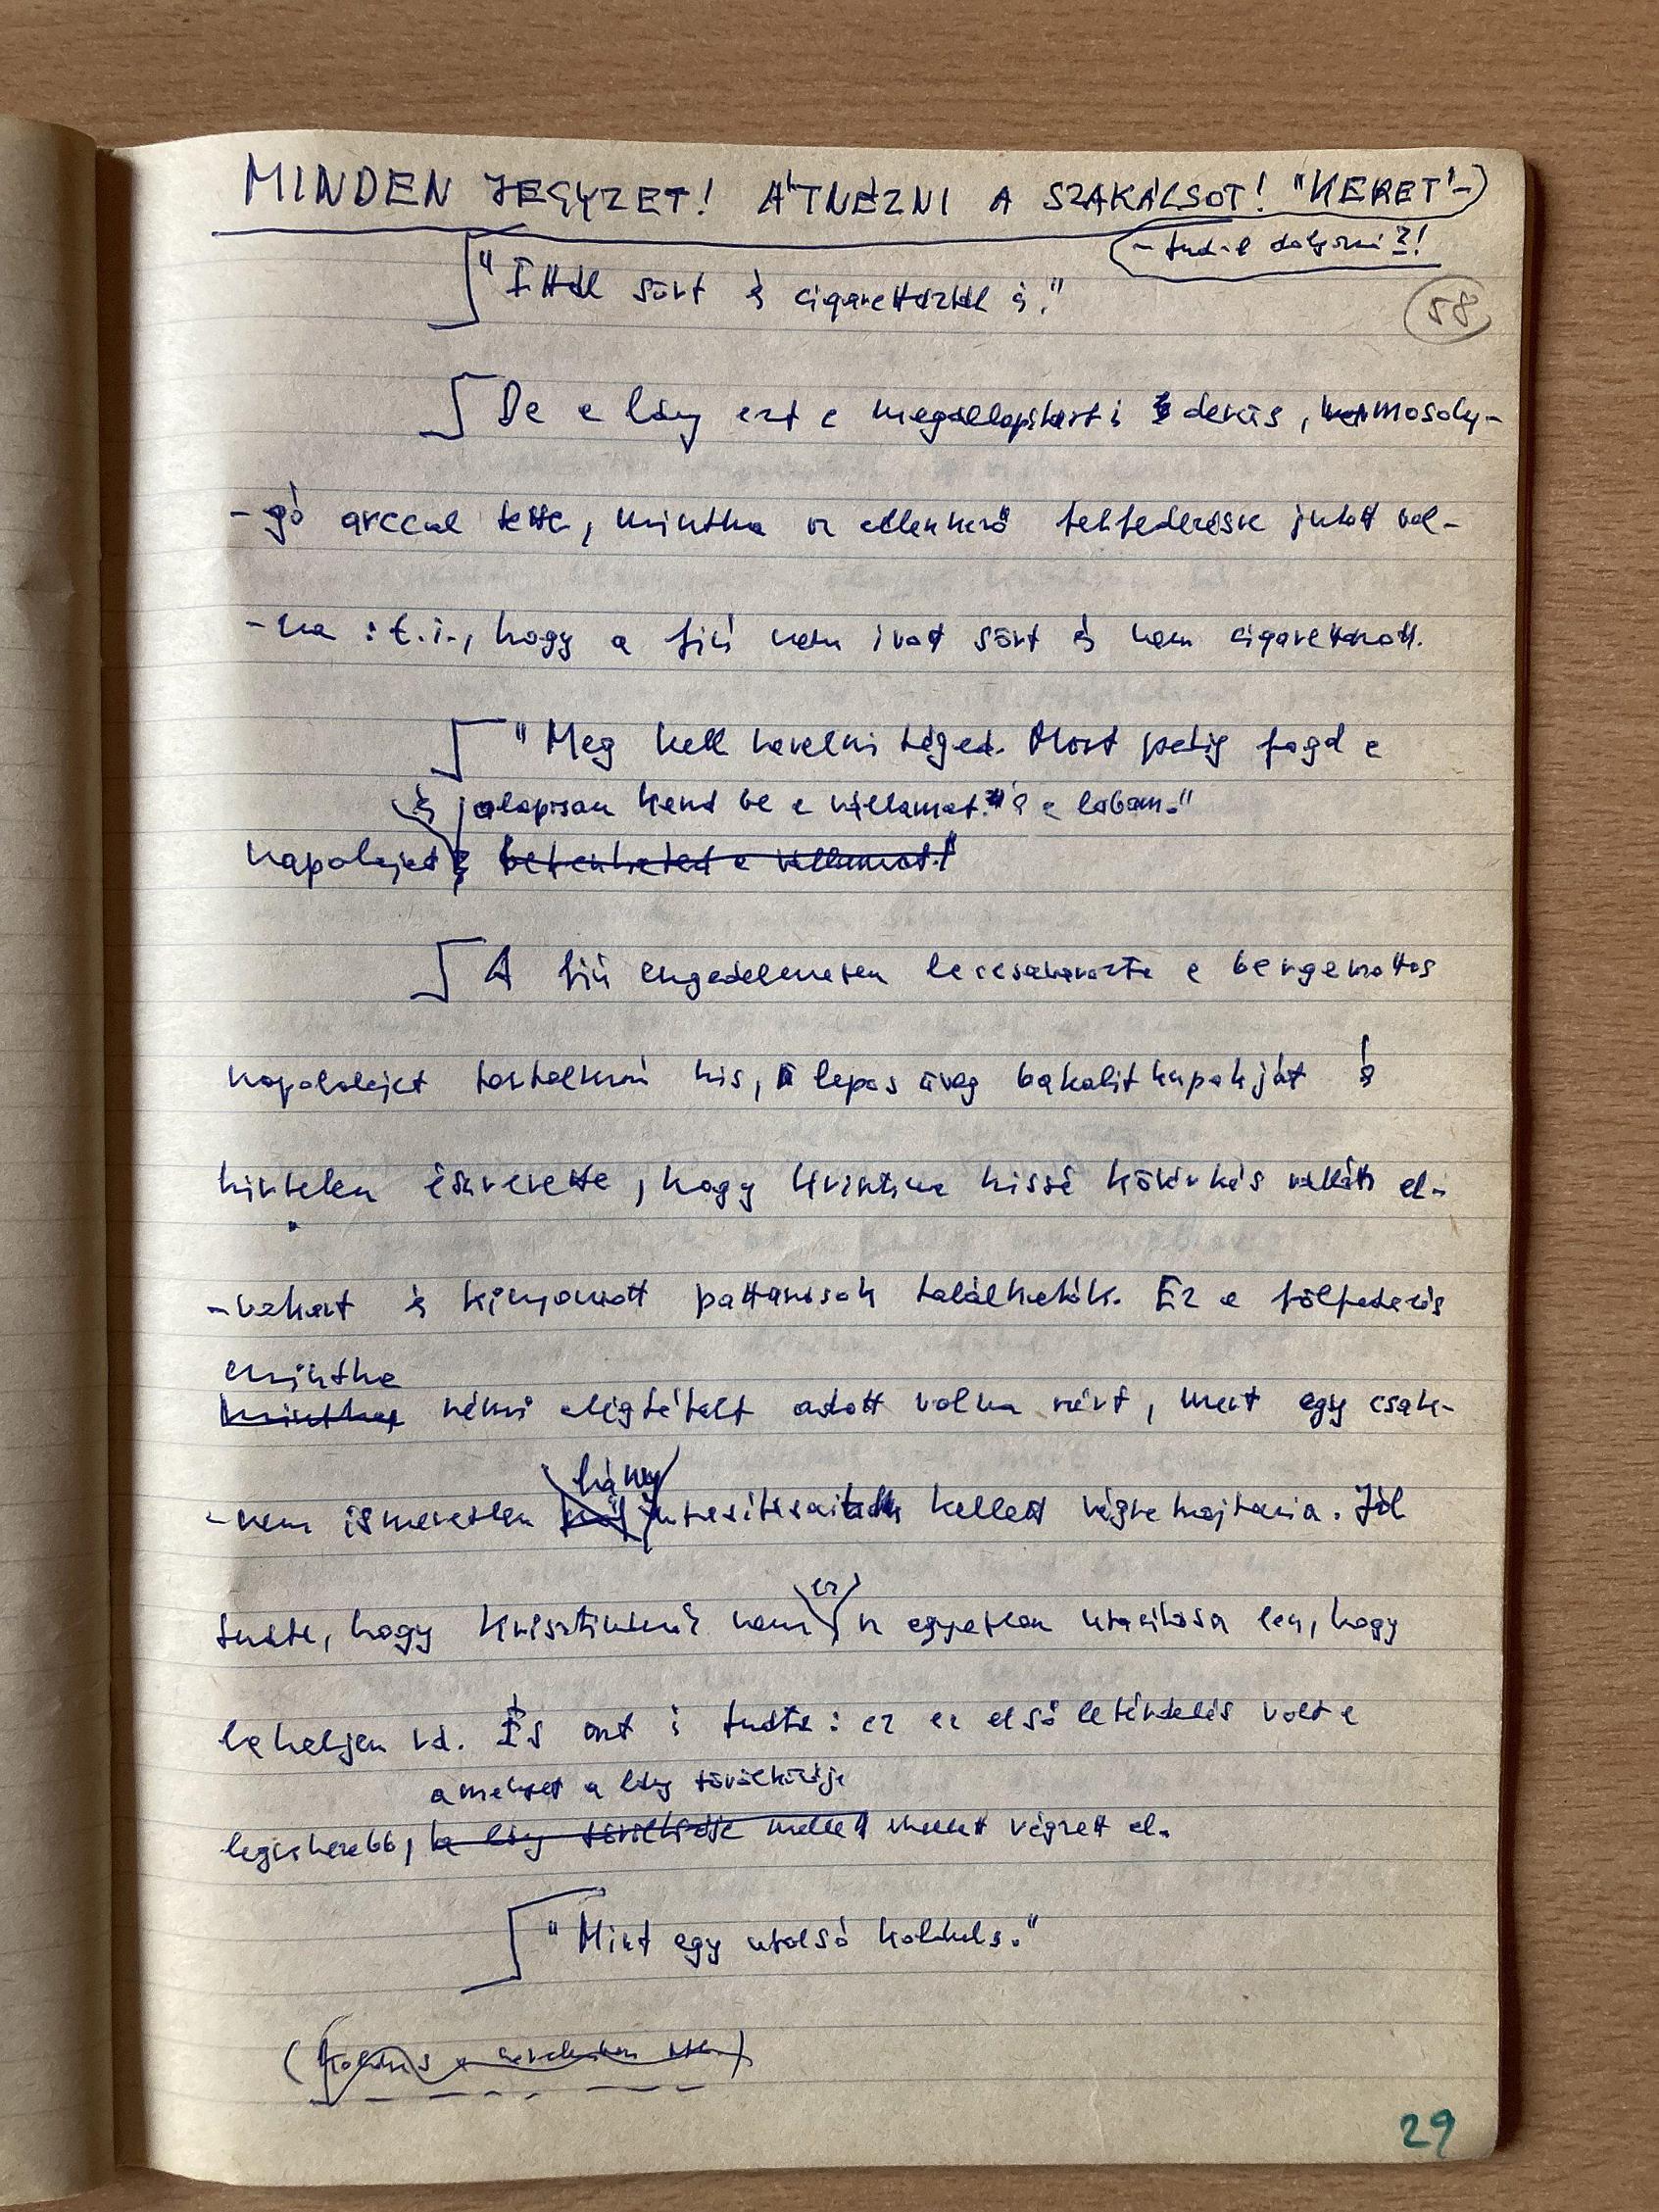 MINDEN JEGYZET! ÁTNÉZNI A SZAKÁCSOT! "KERET"-
58
"Ittál sört és cigarettáztál is."
De a lány ezt a megállapítást is derűs, mosoly-
-gó arccal tette, mintha az ellenkező felfedezésre jutott vol-
-na: t.i., hogy a fiú nem ivott sört és nem cigarettázott.
"Meg kell nevelni téged. Most pedig fogd a
és alaposan kend be a vállamat és a lábam."
napolajat és bekenheted a vállamat!"
A fiú engedelmesen lecsavarta a bergamottos
napolajat tartalmazó kis, lapos üveg bakelit kupakját és
hirtelen észrevette, hogy Krisztina kissé kosárkás vállán el-
-vakart és kinyomott pattanások találhatók. Ez a fölfedezés
mintha
némi elégtételt adott volna neki, mert egy csak-
lány
-nem ismeretlen utasításait kellett végrehajtania. Jól
ez
tudta, hogy Krisztinának nem az egyetlen utasítása lesz, hogy
le hát. És azt is tudta: ez az első letérdelés volt a
amelyet a lány törülközője
legnehezebb, a lány törülközője mellett mellett végzett el.
"Mint egy utolsó koldus."
29